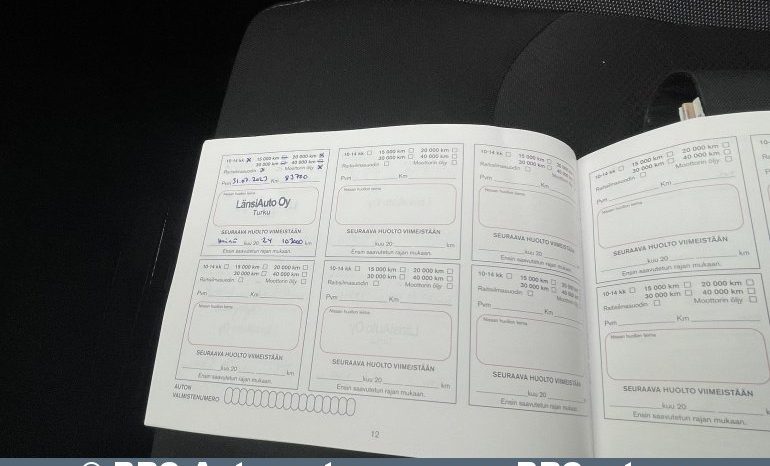 10-14 kk 15 000 km 20 000 km
30 000 km 40 000 km
Raitisilmasuodin Moottorin öljy
Pvm 31.07.2023 Km 83700
Nissan huollon leima
LänsiAuto Oy
Turku
SEURAAVA HUOLTO VIIMEISTÄÄN
kuu 20 24 103000 km
Ensin saavutetun rajan mukaan.
10-14 kk 15 000 km 20 000 km
30 000 km 40 000 km
Raitisilmasuodin Moottorin öljy
Pvm Km
Nissan huollon leima
SEURAAVA HUOLTO VIIMEISTÄÄN
kuu 20 km
Ensin saavutetun rajan mukaan.
10-14 kk 15 000 km
30 000 km
Raitisilmasuodin
Pvm Km
Nissan huollon leima
SEURAAVA HUOLTO VIIMEISTÄÄN
kuu 20
Ensin saavutetun rajan mukaan.
10-14 kk 15 000 km 20 000 km
30 000 km 40 000 km
Raitisilmasuodin Moottorin öljy
Pvm Km
Nissan huollon leima
SEURAAVA HUOLTO VIIMEISTÄÄN
kuu 20 km
Ensin saavutetun rajan mukaan.
10-14 kk 15 000 km 20 000 km
30 000 km 40 000 km
Raitisilmasuodin Moottorin öljy
Pvm Km
Nissan huollon leima
SEURAAVA HUOLTO VIIMEISTÄÄN
kuu 20 km
Ensin saavutetun rajan mukaan.
10-14 kk 15 000 km 20 000 km
30 000 km 40 000 km
Raitisilmasuodin Moottorin öljy
Pvm Km
Nissan huollon leima
SEURAAVA HUOLTO VIIMEISTÄÄN
kuu 20 km
Ensin saavutetun rajan mukaan.
10-14 kk 15 000 km
30 000 km
Raitisilmasuodin
Pvm Km
Nissan huollon leima
SEURAAVA HUOLTO VIIMEISTÄÄN
kuu 20
Ensin saavutetun rajan mukaan.
10-14 kk 15 000 km 20 000 km
30 000 km 40 000 km
Raitisilmasuodin Moottorin öljy
Pvm Km
Nissan huollon leima
SEURAAVA HUOLTO VIIMEISTÄÄN
kuu 20 km
Ensin saavutetun rajan mukaan.
AUTON
VALMISTENUMERO
12